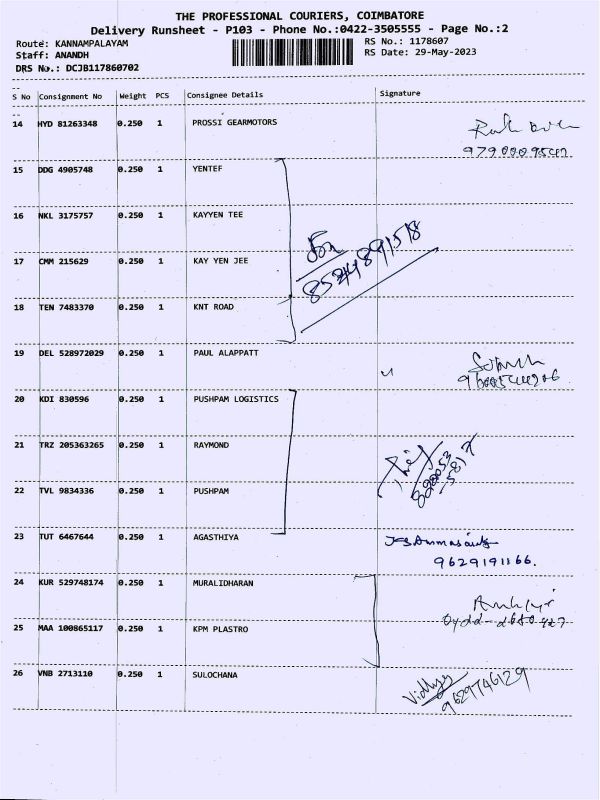 THE PROFESSIONAL COURIERS, COIMBATORE
Delivery Runsheet - P103 - Phone No.:0422-3505555 - Page No.:2
Route: KANNAMPALAYAM RS No.: 1178607
Staff: ANANDH RS Date: 29-May-2023
DRS No.: DCJB117860702
S No Consignment No Weight PCS Consignee Details Signature
14 HYD 81263348 0.250 1 PROSSI GEARMOTORS
15 DDG 4905748 0.250 1 YENTEF
16 NKL 3175757 0.250 1 KAYYEN TEE
17 CMM 215629 0.250 1 KAY YEN JEE
18 TEN 7483370 0.250 1 KNT ROAD
19 DEL 528972029 0.250 1 PAUL ALAPPATT
20 KDI 830596 0.250 1 PUSHPAM LOGISTICS
21 TRZ 205363265 0.250 1 RAYMOND
22 TVL 9834336 0.250 1 PUSHPAM
23 TUT 6467644 0.250 1 AGASTHIYA
9629191166.
24 KUR 529748174 0.250 1 MURALIDHARAN
25 MAA 100865117 0.250 1 KPM PLASTRO
26 VNB 2713110 0.250 1 SULOCHANA
Vidhya
9629746129